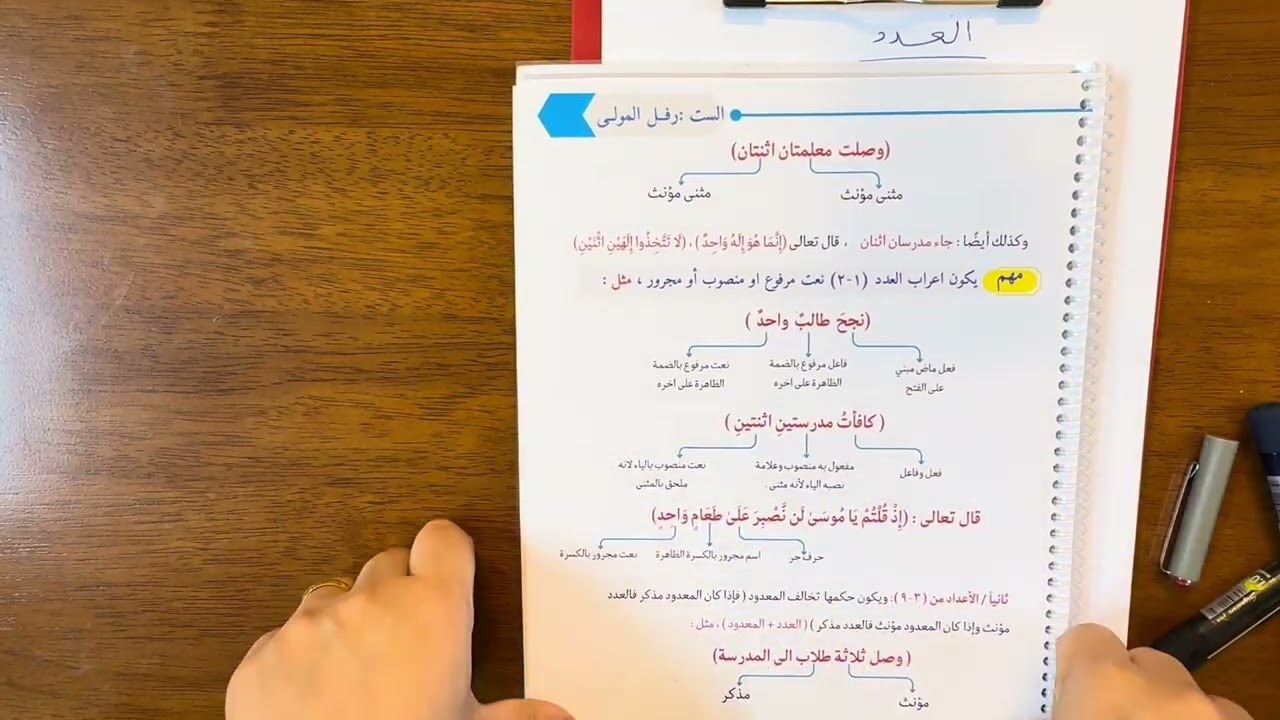 العدد
الست :رفل المولى
(وصلت معلمتان اثنتان)
مثنى مؤنث مثنى مؤنث
وكذلك أيضًا : جاء مدرسان اثنان ، قال تعالى (إِنَّمَا هُوَ إِلَهٌ وَاحِدٌ ) ، (لَا تَتَّخِذُوا إِلَهَيْنِ اثْنَيْنِ)
مهم يكون اعراب العدد (١-٢) نعت مرفوع او منصوب أو مجرور ، مثل :
(نجحَ طالبٌ واحدٌ )
فعل ماض مبني فاعل مرفوع بالضمة نعت مرفوع بالضمة
على الفتح الظاهرة على اخره الظاهرة على اخره
( كافأتُ مدرستينِ اثنتينِ )
فعل وفاعل مفعول به منصوب وعلامة نعت منصوب بالياء لانه
نصبه الياء لأنه مثنى . ملحق بالمثنى
قال تعالى : (إِذْ قُلْتُمْ يَا مُوسَىٰ لَن نَّصْبِرَ عَلَىٰ طَعَامٍ وَاحِدٍ)
حرف جر اسم مجرور بالكسرة الظاهرة نعت مجرور بالكسرة
ثانياً / الأعداد من ( ٣-٩ ) : ويكون حكمها تخالف المعدود ( فإذا كان المعدود مذكر فالعدد
مؤنث وإذا كان المعدود مؤنث فالعدد مذكر ) ( العدد + المعدود ) ، مثل :
( وصل ثلاثة طلاب الى المدرسة)
مؤنث مذكر